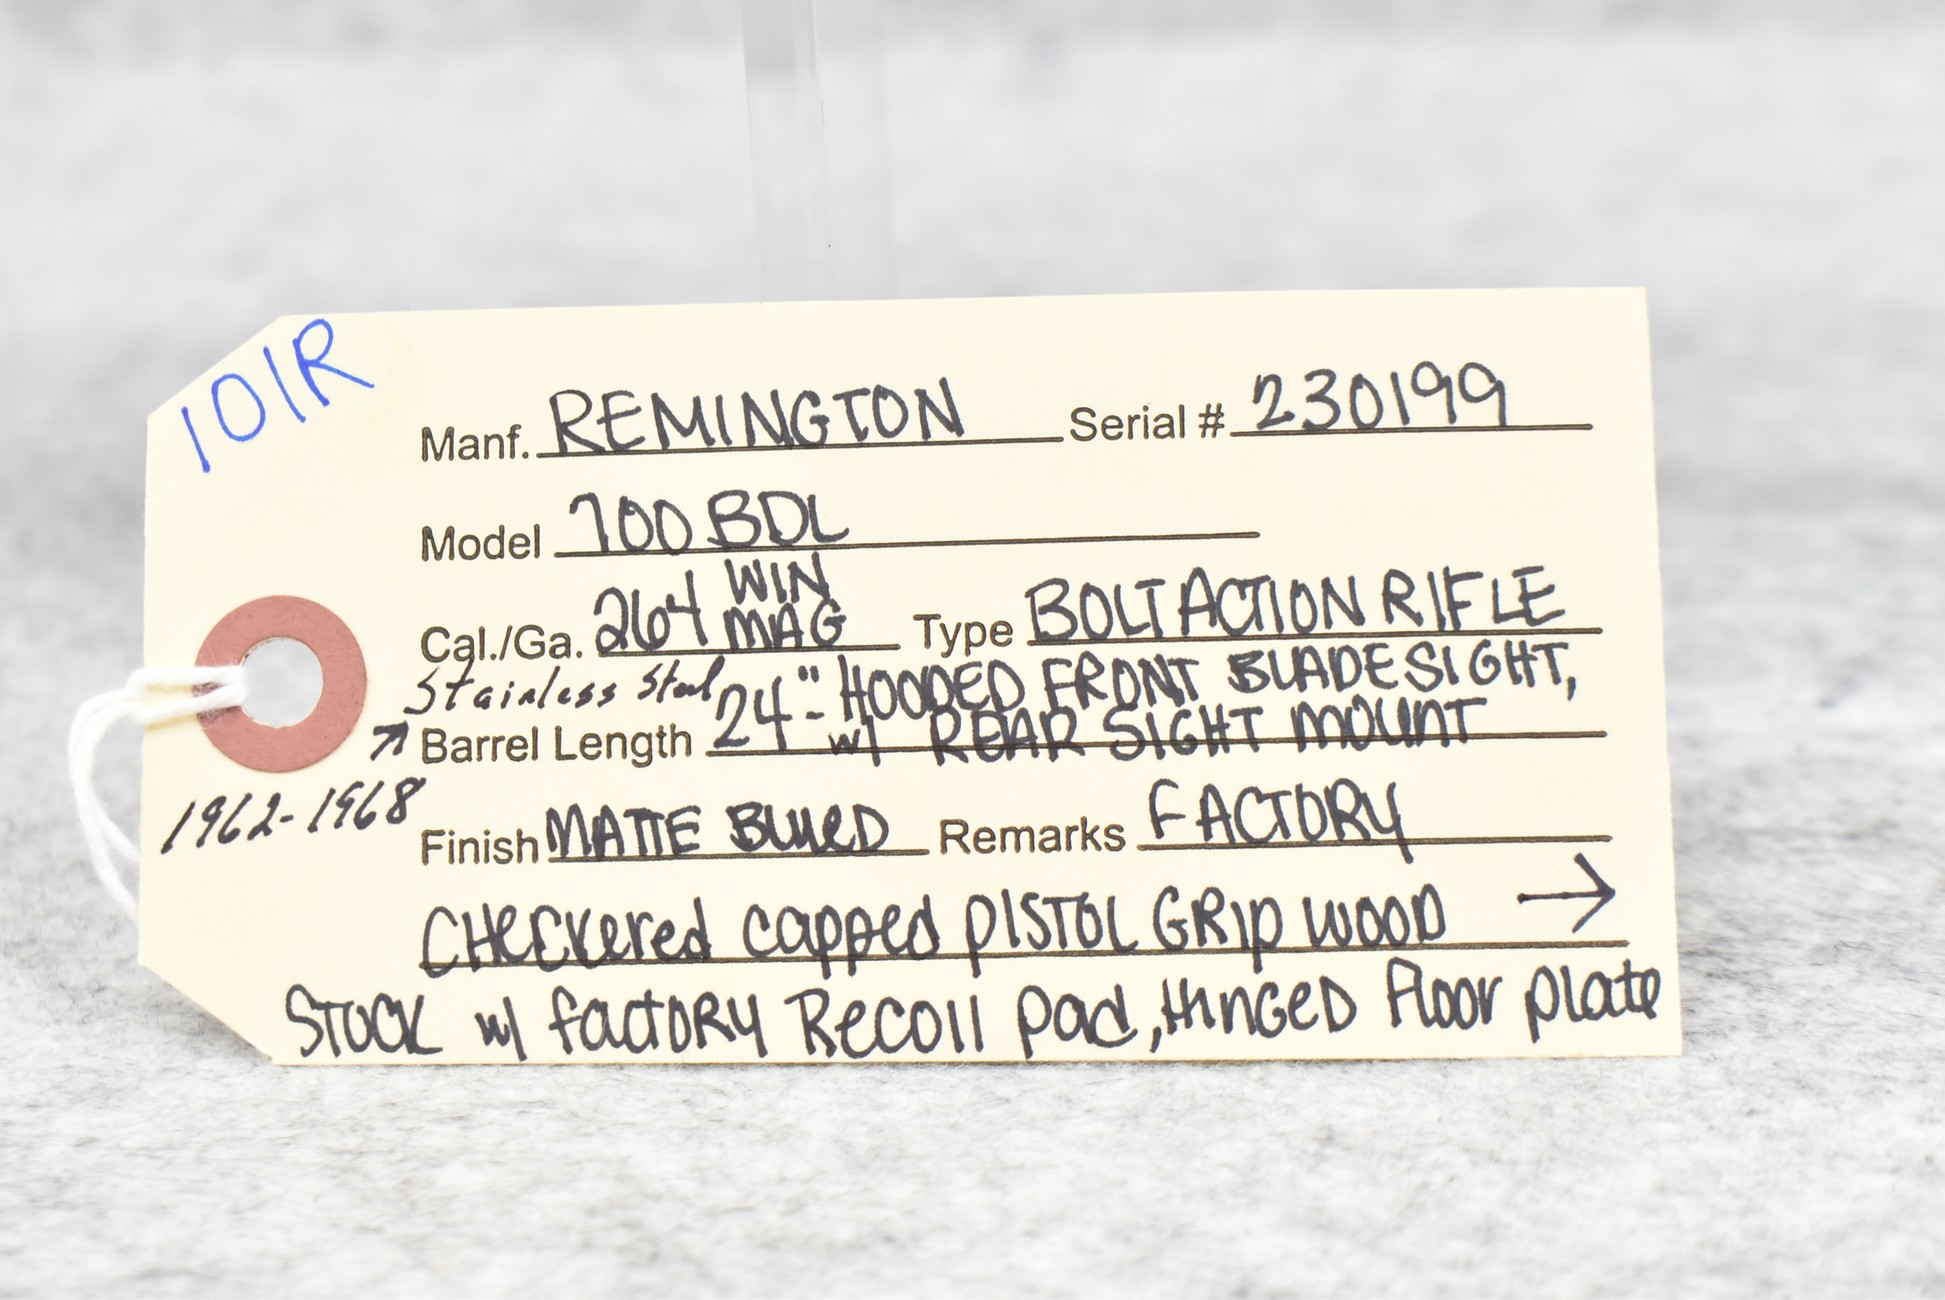 101R
Manf. REMINGTON Serial # 230199
Model 700 BDL
Cal./Ga. 264 WIN MAG Type BOLT ACTION RIFLE
Stainless Steel
Barrel Length 24" - HOODED FRONT BLADE SIGHT,
w/ REAR SIGHT MOUNT
1962-1968
Finish MATTE BLUED Remarks FACTORY
CHECKERED CAPPED PISTOL GRIP WOOD →
STOCK w/ FACTORY RECOIL PAD, HINGED FLOOR PLATE